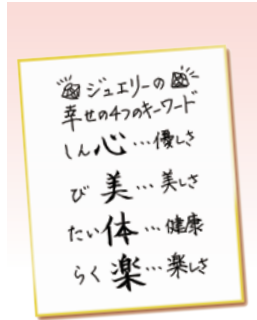 ジュエリーの
幸せの4つのキーワード
しん心…優しさ
び美…美しさ
たい体…健康
らく楽…楽しさ